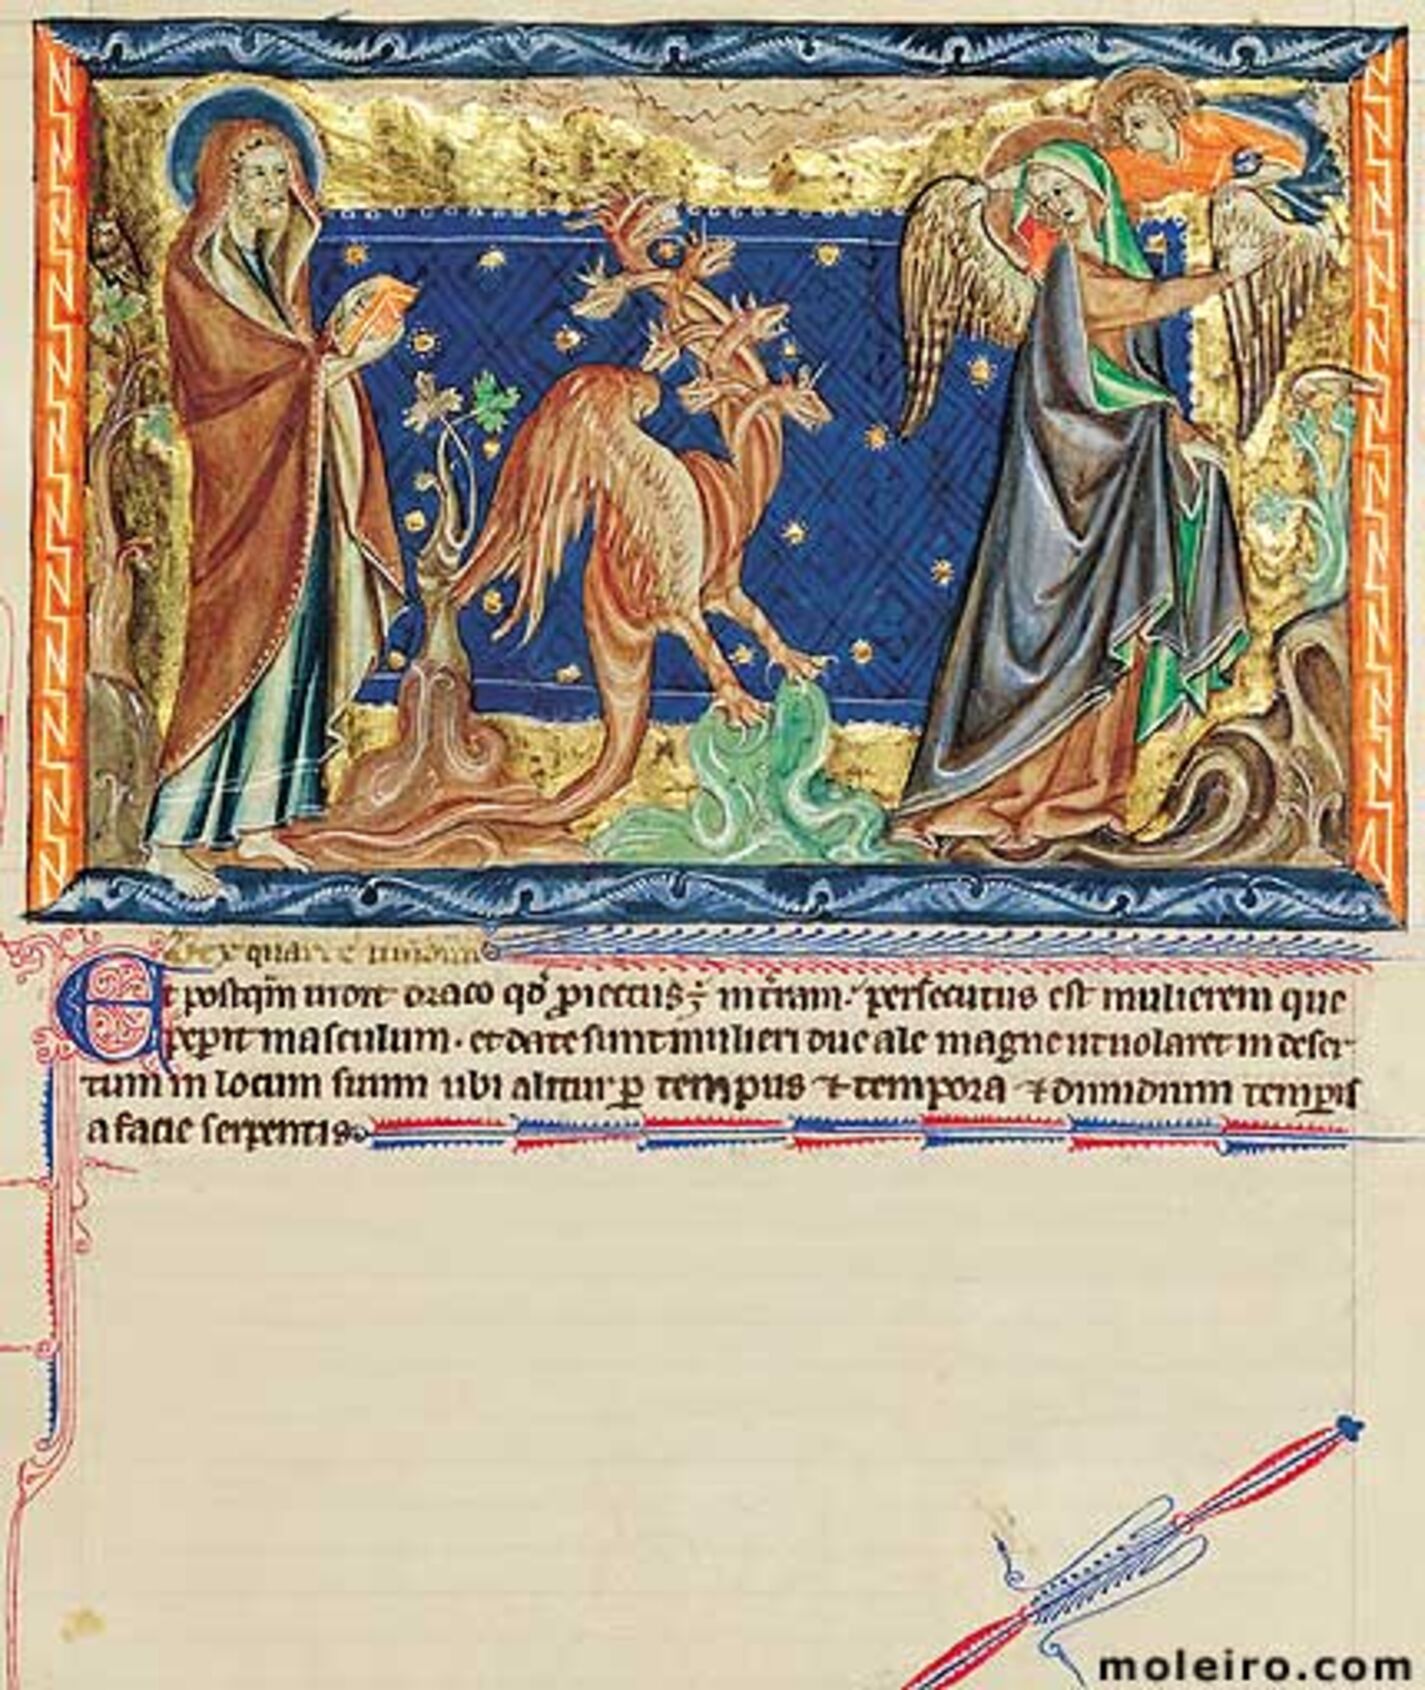 Et postq̄m uidit draco qd̓ ꝓiectus ē in t̓ram. persecutus est mulierem que
peꝑit masculum. et date sunt mulieri due ale magne ut uolaret in deser-
tum in locum suum ubi alitur ꝑ tempus ⁊ tempora ⁊ dimidium temꝑis
a facie serpentis
moleiro.com